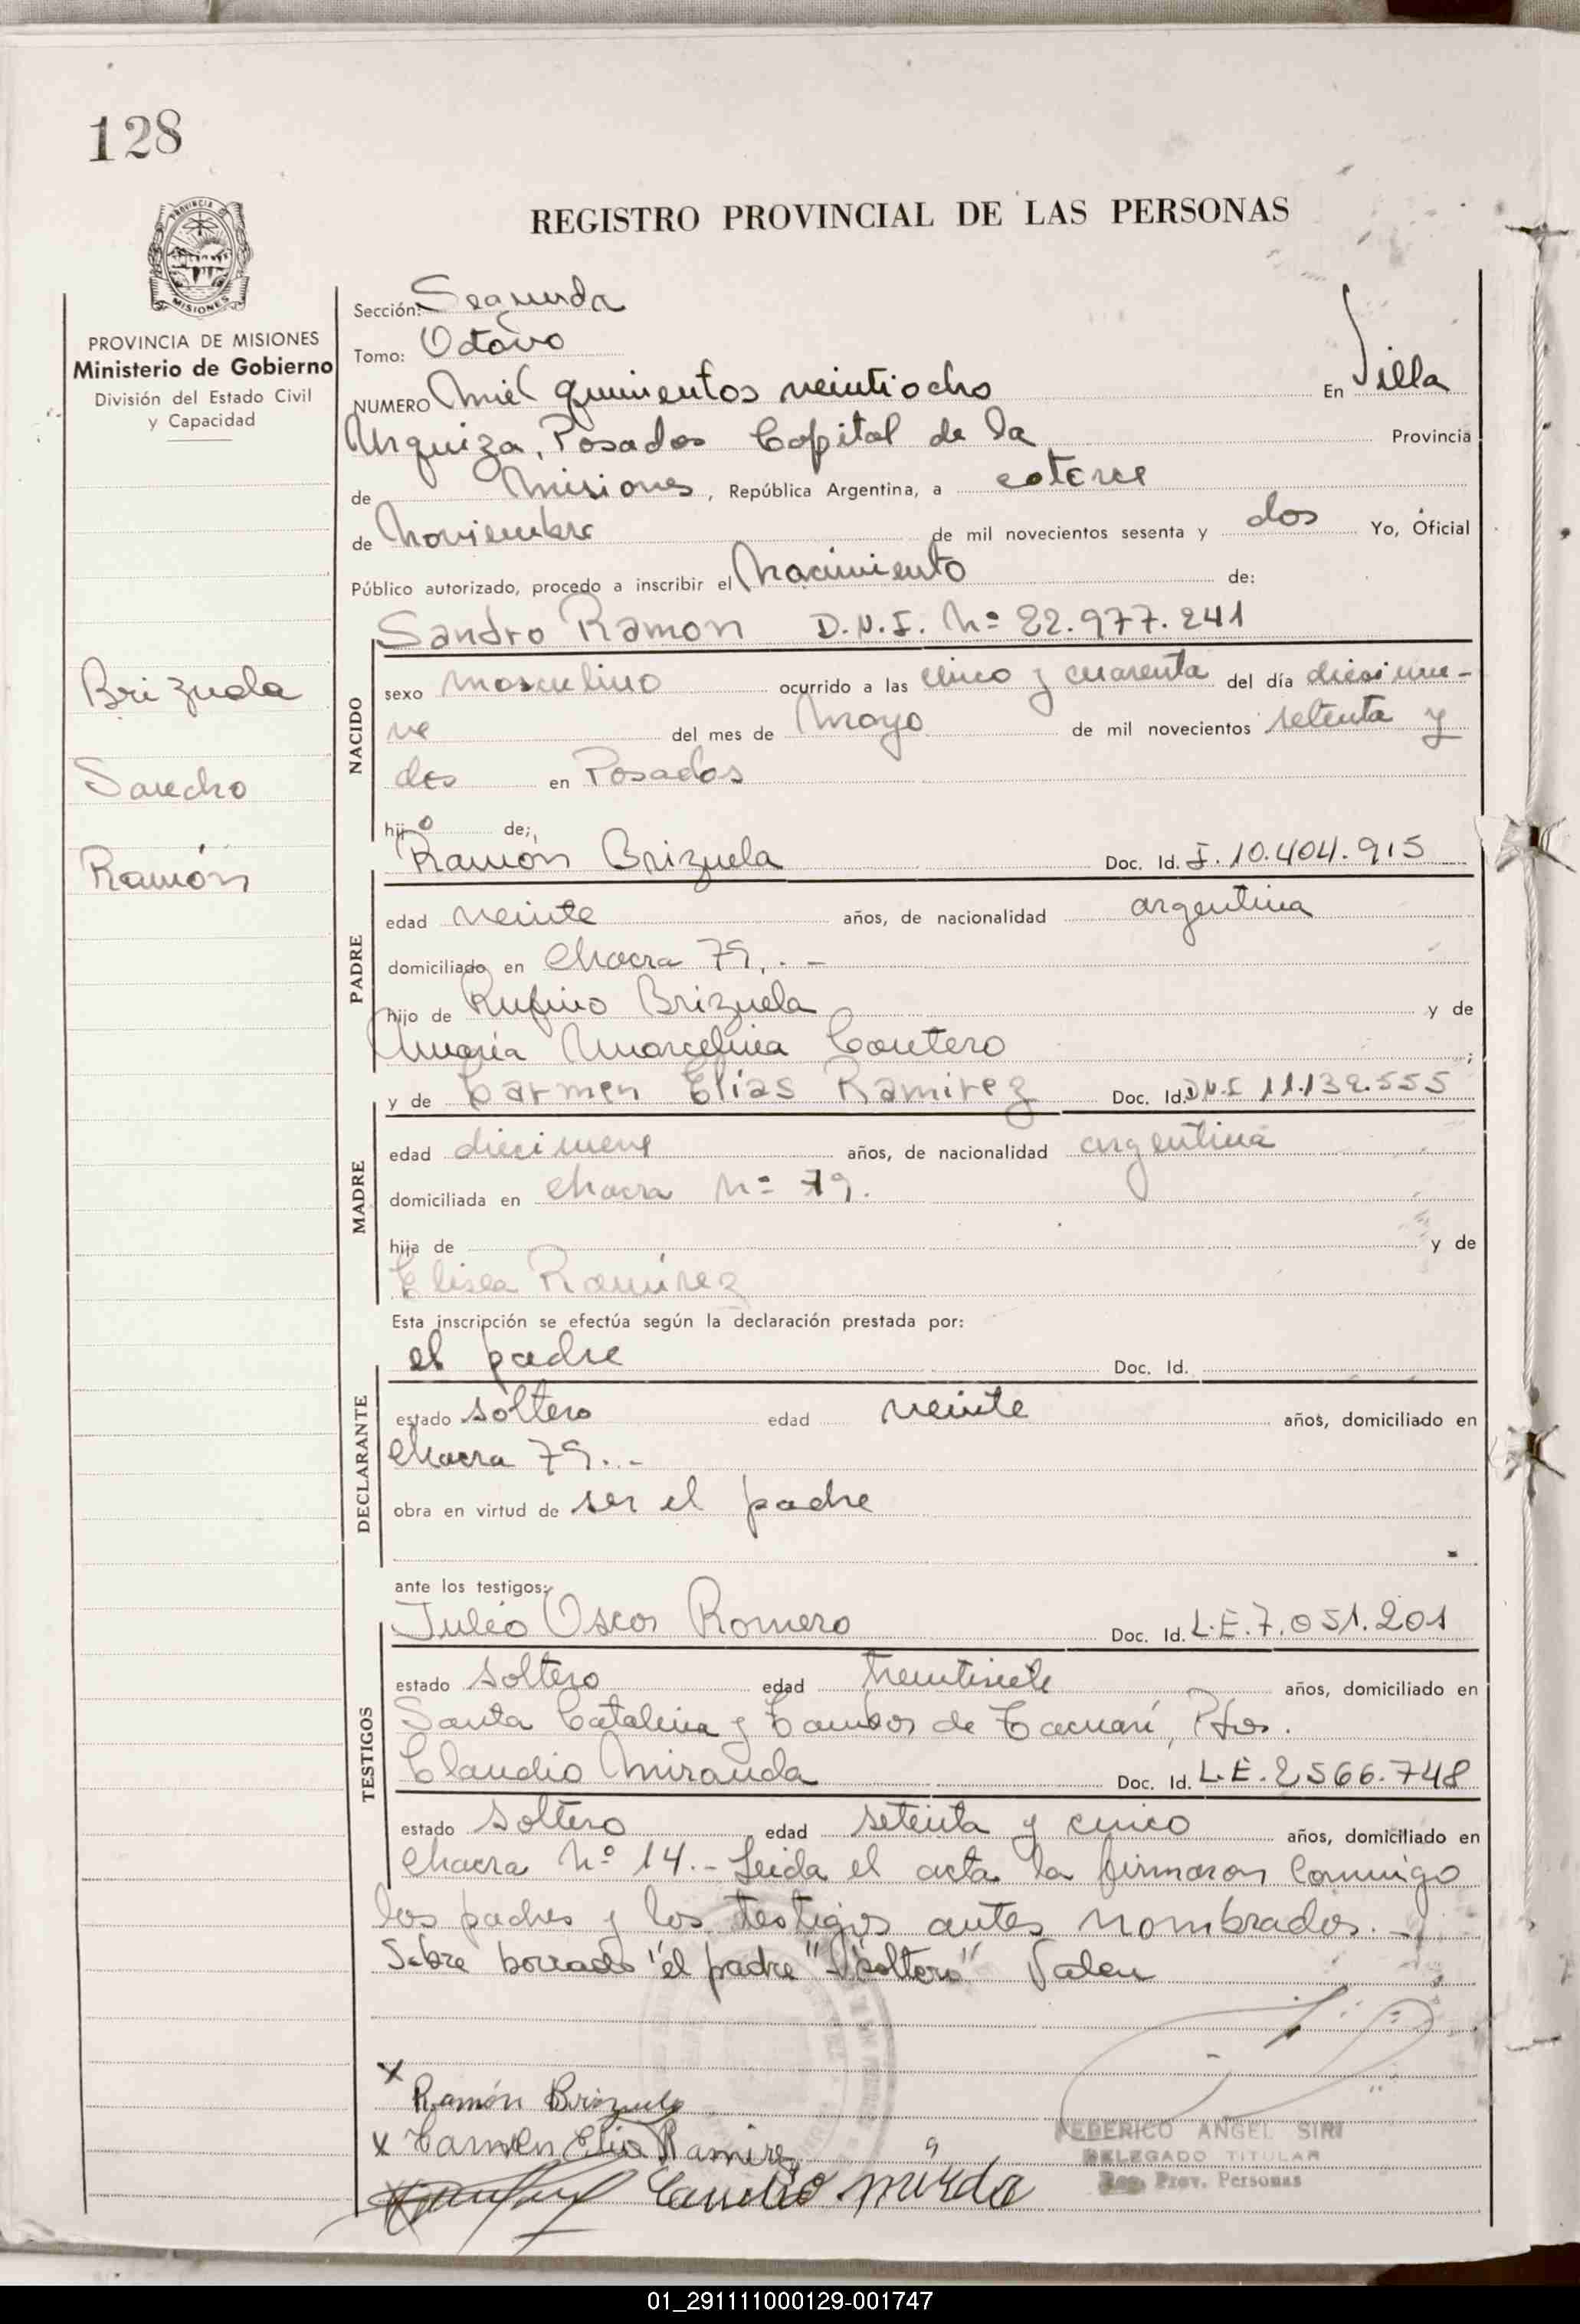 128
REGISTRO PROVINCIAL DE LAS PERSONAS
PROVINCIA DE MISIONES
Ministerio de Gobierno
División del Estado Civil
y Capacidad
Brizuela
Sandro
Ramón
Sección: Segunda
Tomo: Octavo
NUMERO Mil quinientos veintiocho En Villa
Urquiza, Posadas Capital de la Provincia
de Misiones, República Argentina, a catorce
de Noviembre de mil novecientos sesenta y dos Yo, Oficial
Público autorizado, procedo a inscribir el Nacimiento de:
Sandro Ramon D.N.I. Nº 22.977.241
NACIDO
sexo masculino ocurrido a las cinco y cuarenta del día diecinue-
ve del mes de Mayo de mil novecientos setenta y
dos en Posadas
hijo de:
Ramón Brizuela Doc. Id. I. 10.404.915
PADRE
edad veinte años, de nacionalidad argentina
domiciliado en Chacra 79. . -
hijo de Rufino Brizuela y de
María Marcelina Coutero ;
y de Carmen Elías Ramirez Doc. Id. D.N.I 11.132.555
MADRE
edad diecinueve años, de nacionalidad argentina
domiciliada en Chacra Nº 79.
hija de y de
Elisea Ramírez
Esta inscripción se efectúa según la declaración prestada por:
el padre Doc. Id.
DECLARANTE
estado soltero edad veinte años, domiciliado en
Chacra 79 . . -
obra en virtud de ser el padre
ante los testigos:
Julio Oscar Romero Doc. Id. L.E. 7.051.201
TESTIGOS
estado soltero edad treintisiete años, domiciliado en
Santa Catalina y Tambor de Tacuarí, Pdas.
Claudio Miranda Doc. Id. L.E. 2566.748
estado soltero edad setenta y cinco años, domiciliado en
Chacra Nº 14.- Leida el acta la firmaron Conmigo
los padres y los testigos antes nombrados. -
Sobre borrado "el padre" "soltero" Valen
x
Ramón Brizuela
x Carmen Elia Ramirez
FEDERICO ANGEL SIRI
DELEGADO TITULAR
Reg. Prov. Personas
01_291111000129-001747